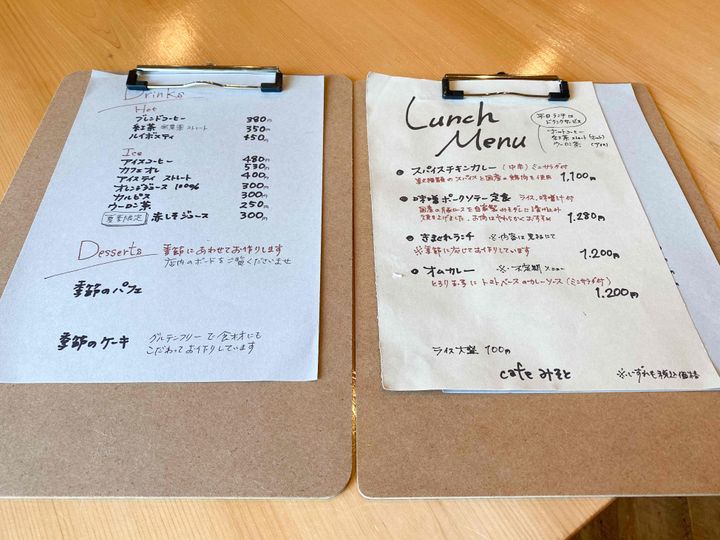 Drinks
Hot
ブレンドコーヒー 380円
紅茶 ストレート 350円
ルイボスティ 450円
Ice
アイスコーヒー 480円
カフェオレ 530円
アイスティ ストレート 400円
オレンジジュース 100% 300円
カルピス 300円
ウーロン茶 250円
夏季限定 赤しそジュース 300円
Desserts 季節にあわせてお作りします
店内のボードをご覧くださいませ
季節のパフェ
季節のケーキ グルテンフリーで食材にも
こだわってお作りしています
Lunch
Menu
平日ランチは
ドリンクサービス
ホットコーヒー
紅茶 ストレート (ホット)
ウーロン茶 (アイス)
スパイスチキンカレー (中辛) ミニサラダ付
種類のスパイスと国産の鶏肉を使用 1,100円
味噌ポークソテー定食 ライス、味噌汁付
国産の豚ロースを自家製
焼き上げました。お肉はやわらかくおすすめ 1.280円
きまぐれランチ ※内容は黒板にて
※季節に応じてお作りしています 1.200円
オムカレー ※不定期メニュー
とろりたまごに トマトベースのカレーソース (ミニサラダ付)
1.200円
ライス大盛 100円
cafe みもと
※いずれも税込価格